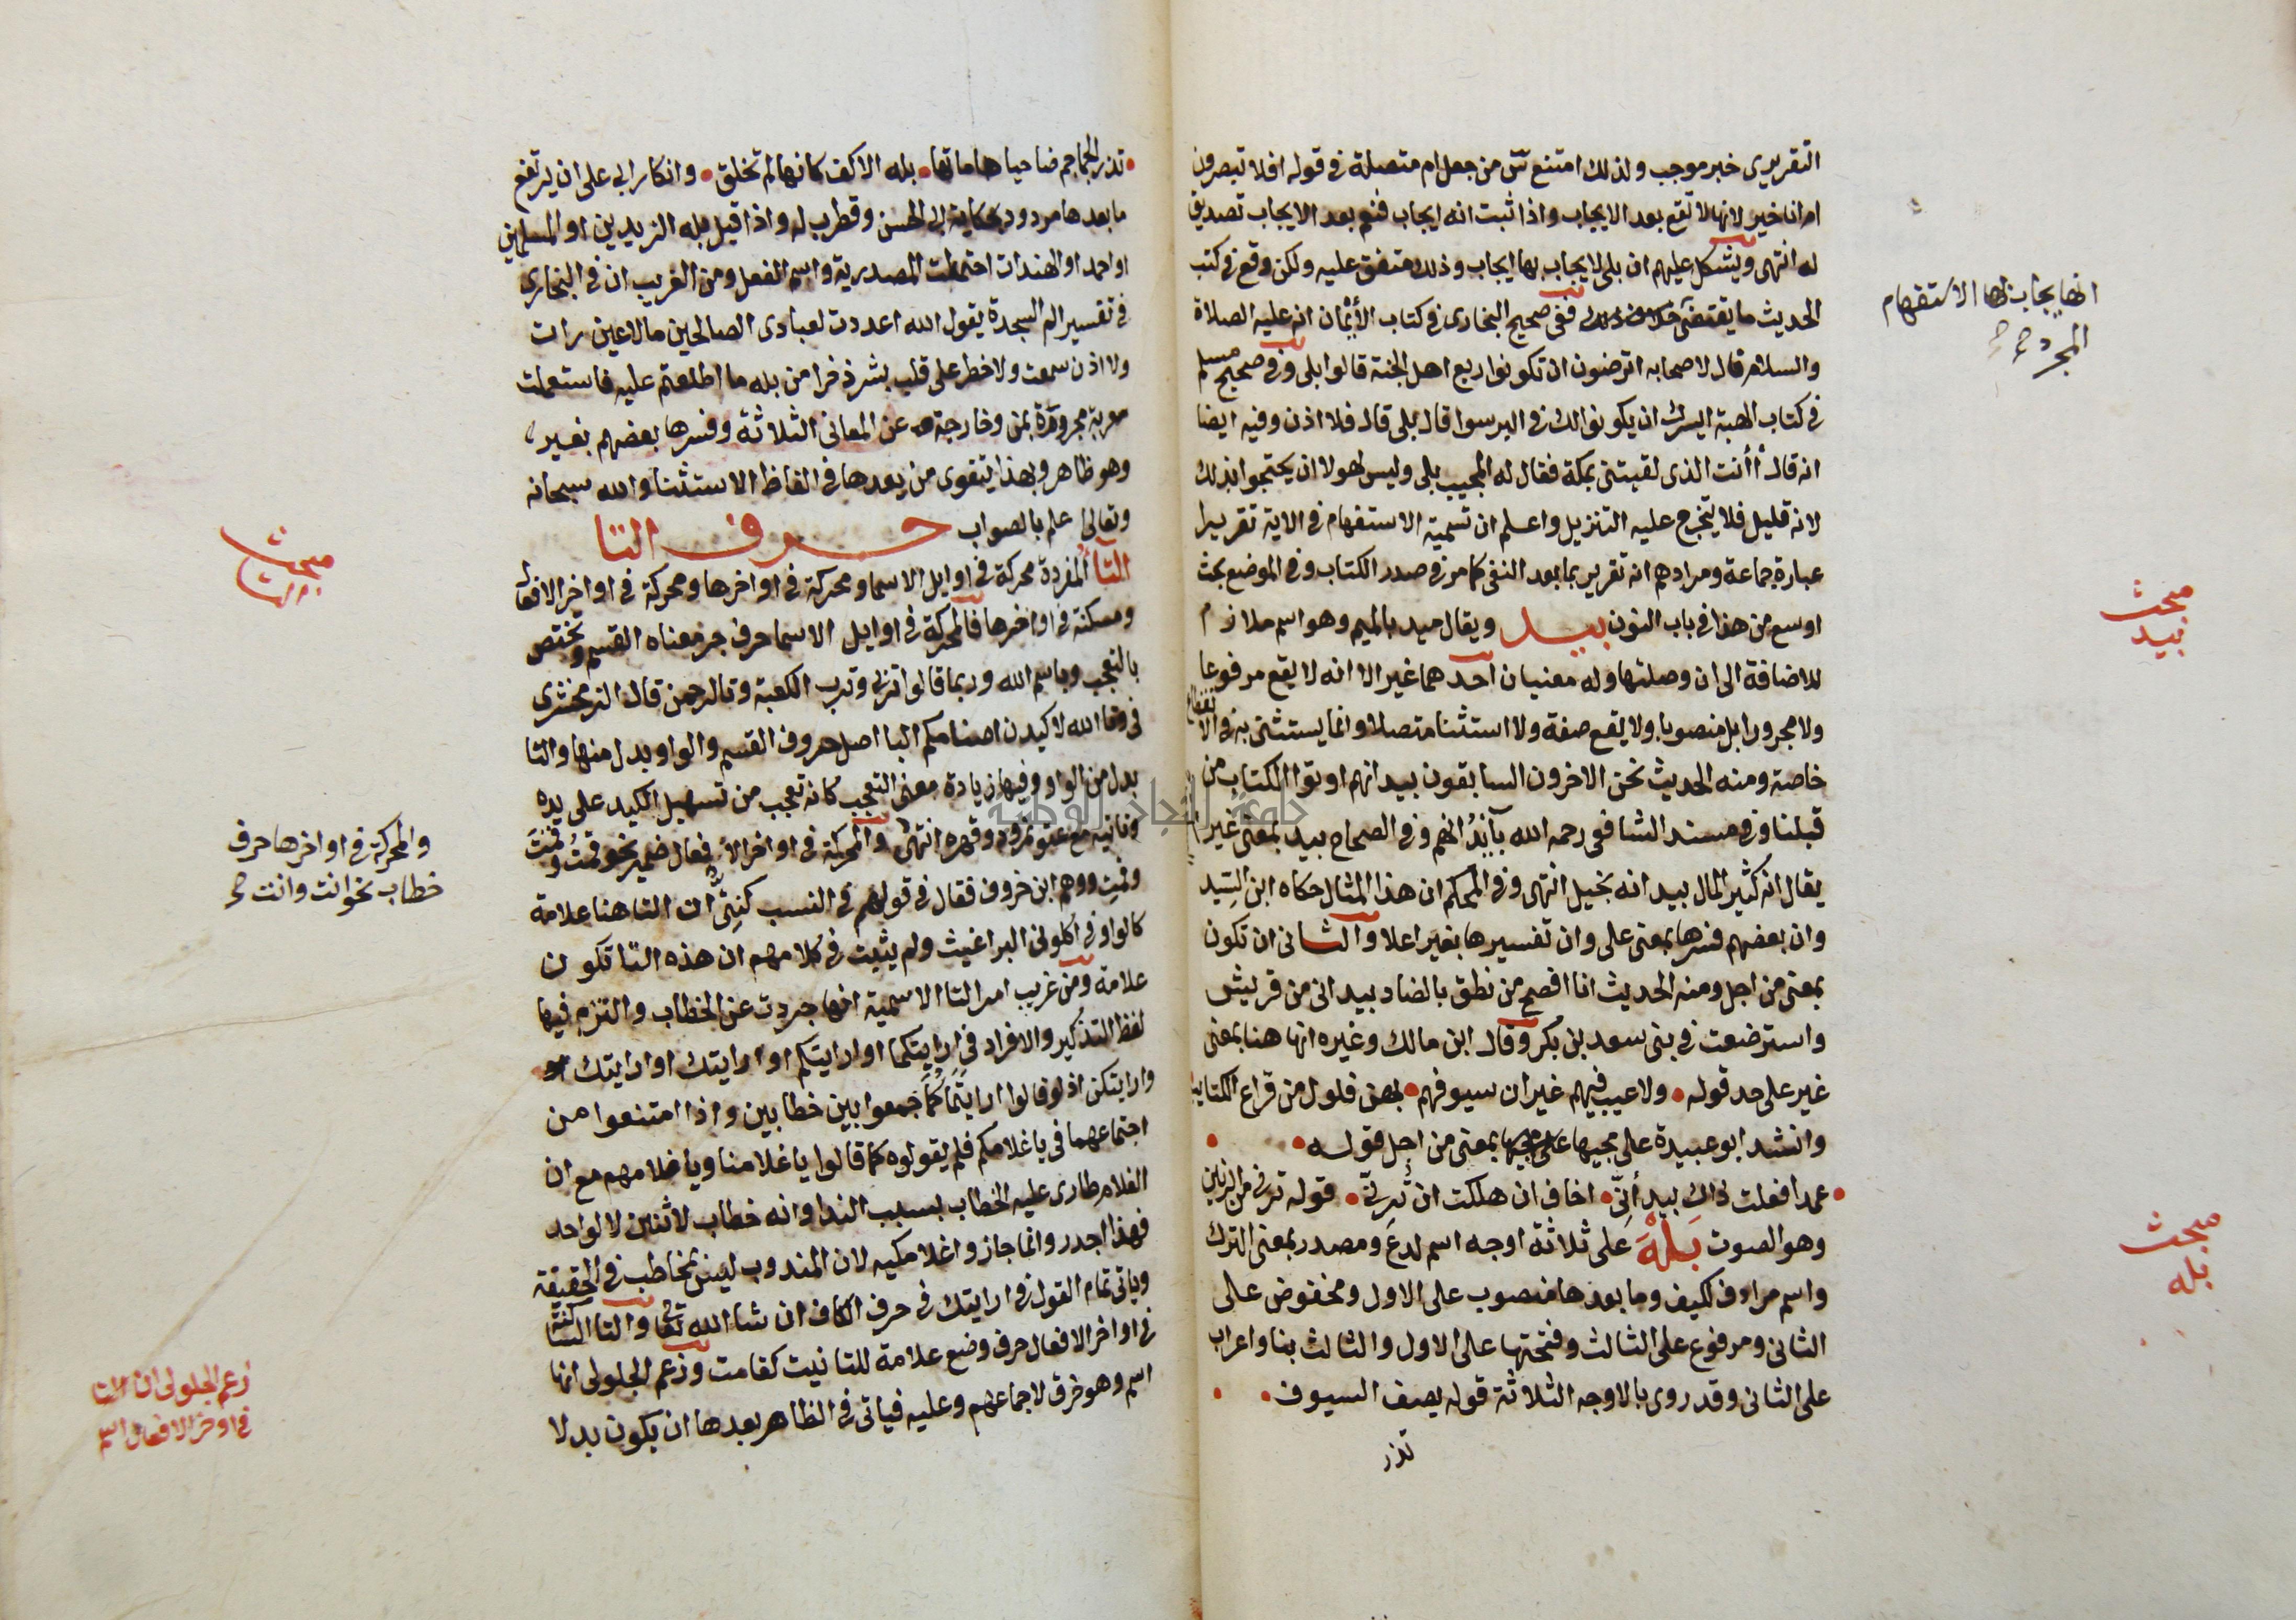 التقريرى خبر موجب ولذلك امتنع س من جعل ام متصلة فى قوله افلا تبصرون
ام انا خير لانها لا تقع بعد الايجاب واذا ثبت انه ايجاب فنعم بعد الايجاب تصديق
له انتهى ويشكل عليهم ان بلى لا يجاب بها ايجاب وذلك متفق عليه ولكن وقع فى كتب
الحديث ما يقتضى خلاف ذلك ففى صحيح البخارى فى كتاب الأيمان انه عليه الصلاة
والسلام قال لاصحابه اترضون ان تكونوا ربع اهل الجنة قالوا بلى وفى صحيح مسلم
فى كتاب الهبة ايسرك ان يكونوا لك فى البر سوا قال بلى قال فلا اذن وفيه ايضا
انه قال أأنت الذى لقيتنى بمكة فقال له المجيب بلى وليس لهولا ان يحتجوا بذلك
لانه قليل فلا يتخرج عليه التنزيل واعلم ان تسمية الاستفهام فى الاية تقريرا
عبارة جماعة ومرادهم انه تقرير بما بعد النفى كما مر فى صدر الكتاب وفى الموضع بحث
اوسع من هذا فى باب النون بيد ويقال ميد بالميم وهو اسم ملازم
للاضافة الى ان وصلتها وله معنيان احدهما غير الا انه لا يقع مرفوعا
ولا مجرورا بل منصوبا ولا يقع صفة ولا استثنا متصلا وانما يستثنى به فى الانقطاع
خاصة ومنه الحديث نحن الاخرون السابقون بيد انهم اوتوا الكتاب من
قبلنا وفى مسند الشافعى رحمه الله بآيد انهم وفى الصحاح بيد بمعنى غير
يقال انه كثير المال بيد انه بخيل انتهى وفى المحكم ان هذا المثال حكاه ابن السيد
وان بعضهم فسرها بمعنى على وان تفسيرها بغير اعلا والثانى ان تكون
بمعنى من اجل ومنه الحديث انا افصح من نطق بالضاد بيد انى من قريش
واسترضعت فى بنى سعد بن بكر وقال ابن مالك وغيره انها هنا بمعنى
غير على حد قوله ولا عيب فيهم غير ان سيوفهم بهن فلول من قراع الكتايب
وانشد ابو عبيدة على مجيها بمعنى من اجل قوله
عمدا فعلت ذاك بيد أنى اخاف ان هلكت ان ترنى قوله ترنى من الرنين
وهو الصوت بله على ثلاثة اوجه اسم لدع ومصدر بمعنى الترك
واسم مرادف لكيف وما بعدها منصوب على الاول ومخفوض على
الثانى ومرفوع على الثالث وفتحتها على الاول والثالث بنا واعراب
على الثانى وقد روى بالاوجه الثلاثة قوله يصف السيوف
تذر
انها يجاب بها الاستفهام
المجرد
مبحث
بيد
مبحث
بله
تذر الجماجم ضاحيا هاماتها بله الاكف كانها لم تخلق وانكار ابى على ان يرتفع
ما بعدها مردود بحكاية ابى الحسن وقطرب له واذا قيل بله الزيدين او المسلمين
او احمد او الهندات احتملت المصدرية واسم الفعل ومن الغريب ان فى البخارى
فى تفسير الم السجدة يقول الله اعددت لعبادى الصالحين ما لا عين رات
ولا اذن سمعت ولا خطر على قلب بشر ذخرا من بله ما اطلعتم عليه فاستعملت
معربة مجرورة بمن وخارجة عن المعانى الثلاثة وفسرها بعضهم بغير
وهو ظاهر وبهذا يتقوى من يعدها فى الفاظ الاستثنا والله سبحانه
وتعالى اعلم بالصواب حرف التا
التا المفردة محركة فى اوايل الاسما ومحركة فى اواخرها ومحركة فى اواخر الافعال
ومسكنة فى اواخرها فالمحركة فى اوايل الاسما حرف جر معناه القسم وتختص
بالتعجب وباسم الله وربما قالوا تربى وترب الكعبة وتالرحمن قال الزمخشرى
فى وتالله لاكيدن اصنامكم البا اصل حروف القسم والواو بدل منها والتا
بدل من الواو وفيها زيادة معنى التعجب كانه تعجب من تسهيل الكيد على يده
وتاتيه مع عتو نمرود وقهره انتهى والمحركة فى اواخر الافعال ضمير نحو قمتُ وقمتَ
وقمتِ ووهم ابن خروف فقال فى قولهم فى النسب كنتى ان التا هنا علامة
كالواو فى اكلونى البراغيث ولم يثبت فى كلامهم ان هذه التا تكون
علامة ومن غريب امر التا الاسمية انها جردت عن الخطاب والتزم فيها
لفظ التذكير والافراد فى ارايتكما او ارايتكم او ارايتك او ارايتك
وارايتكن اذ لو قالوا ارايتماكما جمعوا بين خطابين واذا امتنعوا من
اجتماعهما فى يا غلامكم فلم يقولوه كما قالوا يا غلامنا ويا غلامهم مع ان
الغلام طارى عليه الخطاب بسبب الندا وانه خطاب لاثنين لا لواحد
فهذا اجدر وانما جاز واغلامكيه لان المندوب ليس بمخاطب فى الحقيقة
وياتى تمام القول فى ارايتك فى حرف الكاف ان شا الله تعالى والتا الساكنة
فى اواخر الافعال حرف وضع علامة للتانيت كقامت وزعم الجلولى انها
اسم وهو خرق لاجماعهم وعليه فياتى فى الظاهر بعدها ان يكون بدلا
مبحث
التا
والمحركة فى اواخرها حرف
خطاب نحو انت وانت
زعم الجلولى ان التا
فى اوخر الافعال اسم